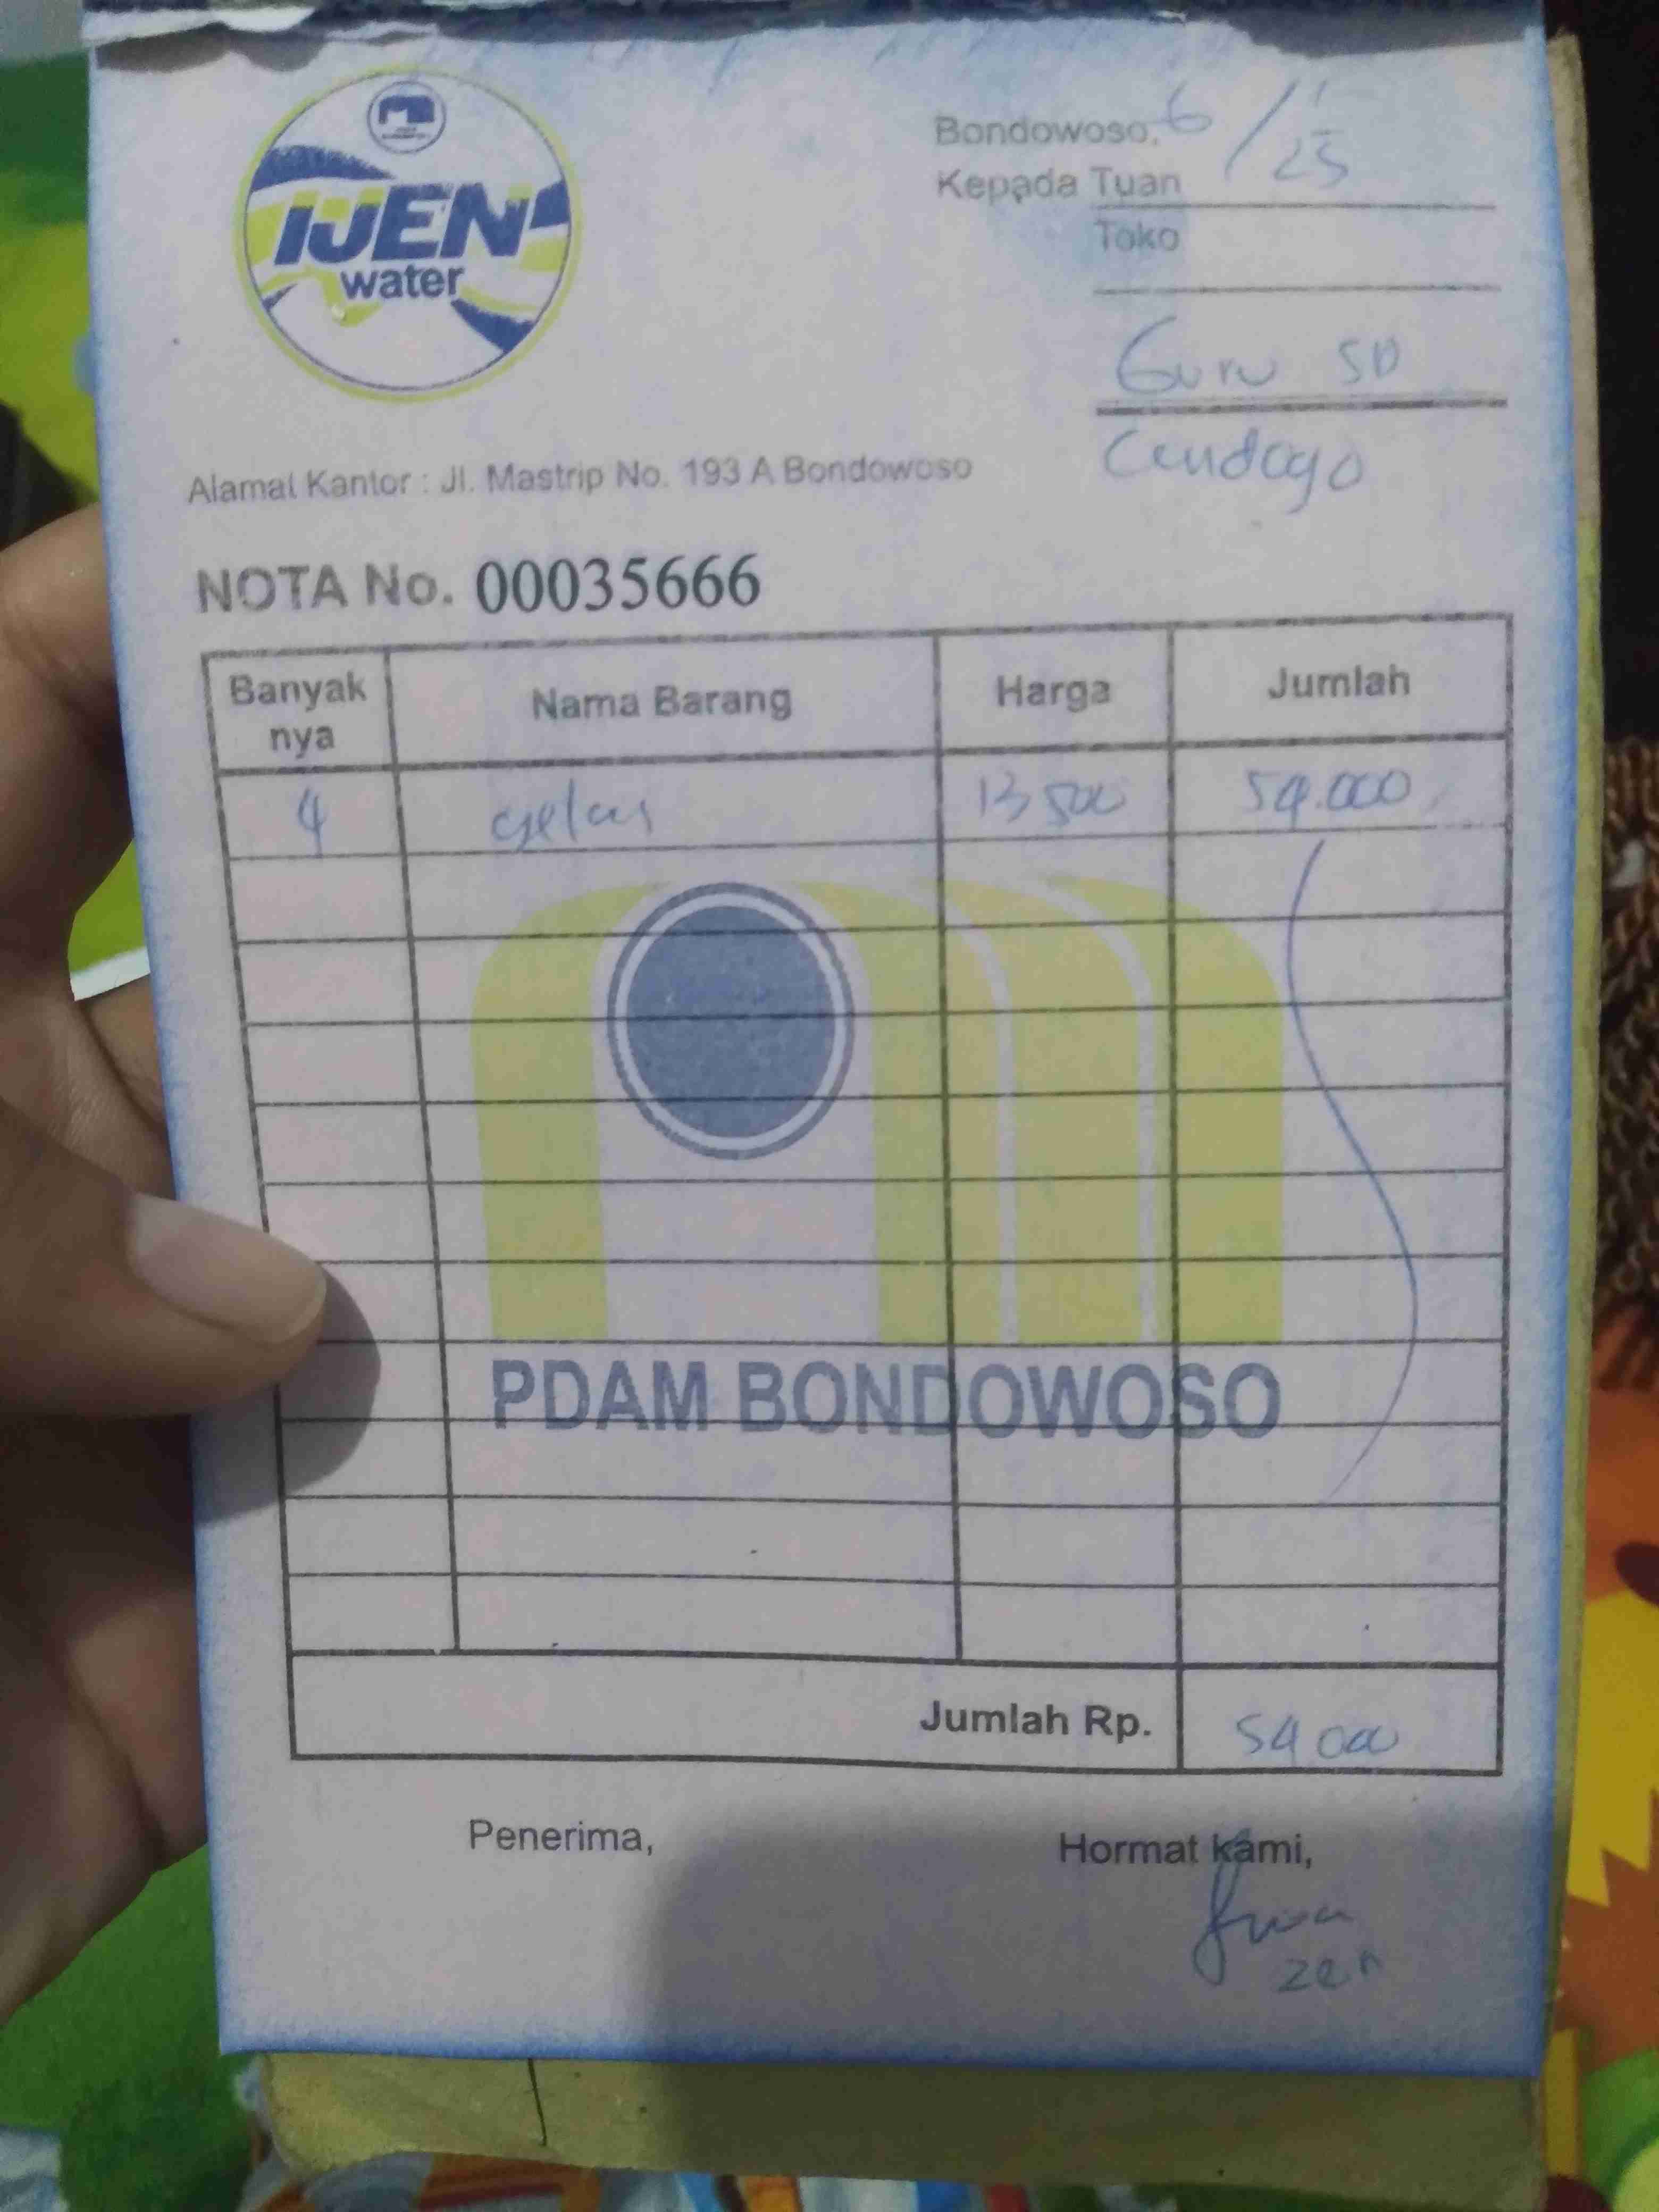 IJEN
water
Bondowoso, 6/1
25
Kepada Tuan
Toko
Guru SD
Cendogo
Alamat Kantor : Jl. Mastrip No. 193 A Bondowoso
NOTA No. 00035666
Banyak nya Nama Barang Harga Jumlah
4 gelas 13 500 54.000
PDAM BONDOWOSO
Jumlah Rp. 54 000
Penerima, Hormat kami,
zen